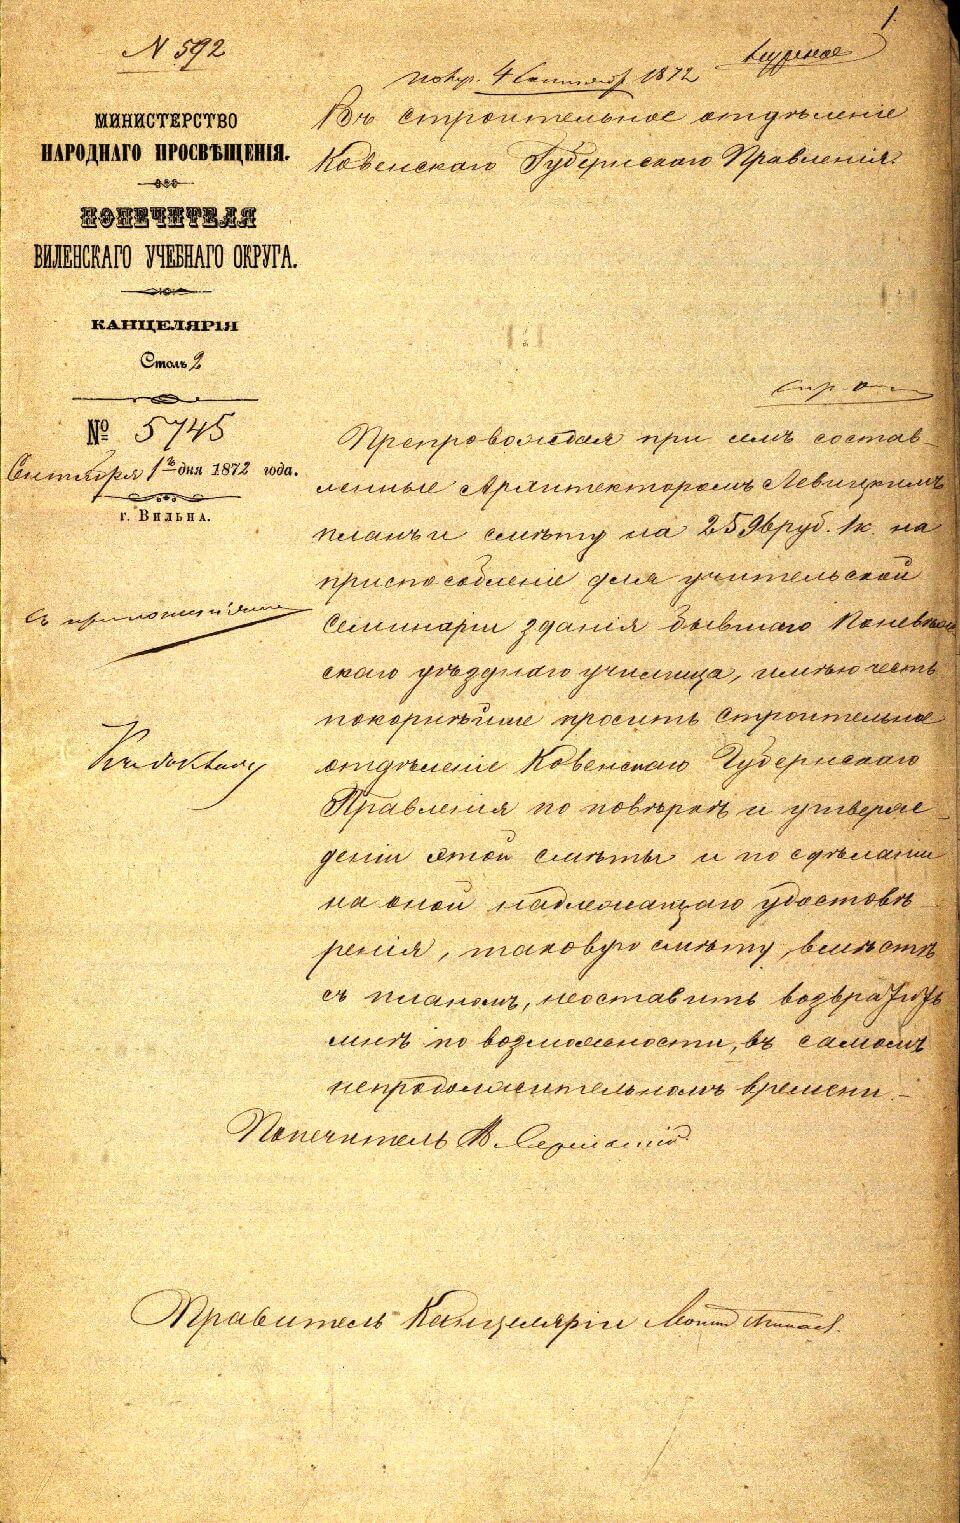 1
№ 592
получ. 4 Сентября 1872
Въ строительное отдѣленіе
Ковенскаго Губернскаго Правленія.
МИНИСТЕРСТВО
НАРОДНАГО ПРОСВѢЩЕНІЯ.
ПОПЕЧИТЕЛЯ
ВИЛЕНСКАГО УЧЕБНАГО ОКРУГА.
КАНЦЕЛЯРІЯ
Столъ 2
№ 5745
Сентября 1 дня 1872 года.
г. Вильна.
Препровождая при семъ состав-
ленные Архитекторомъ Левицкимъ
планъ и смѣту на 2596 руб. 1 к. на
приспособленіе для учительской
Семинаріи зданія бывшаго Поневѣж-
скаго уѣзднаго училища, имѣю честь
покорнѣйше просить строительное
отдѣленіе Ковенскаго Губернскаго
Правленія по повѣркѣ и утверж-
деніи этой смѣты и по сдѣланіи
на оной надлежащаго удостовѣ-
ренія, таковую смѣту, вмѣстѣ
съ планомъ, неоставить возвратить
мнѣ по возможности, въ самомъ
непродолжительномъ времени.
съ приложеніями
Къ докладу
Попечитель
Правитель Канцеляріи